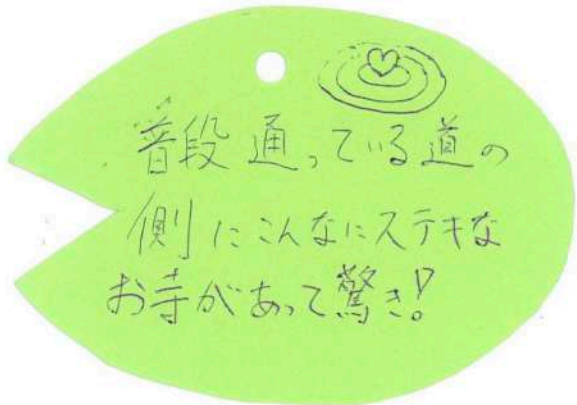 普段通っている道の
側にこんなにステキな
お寺があって驚き!